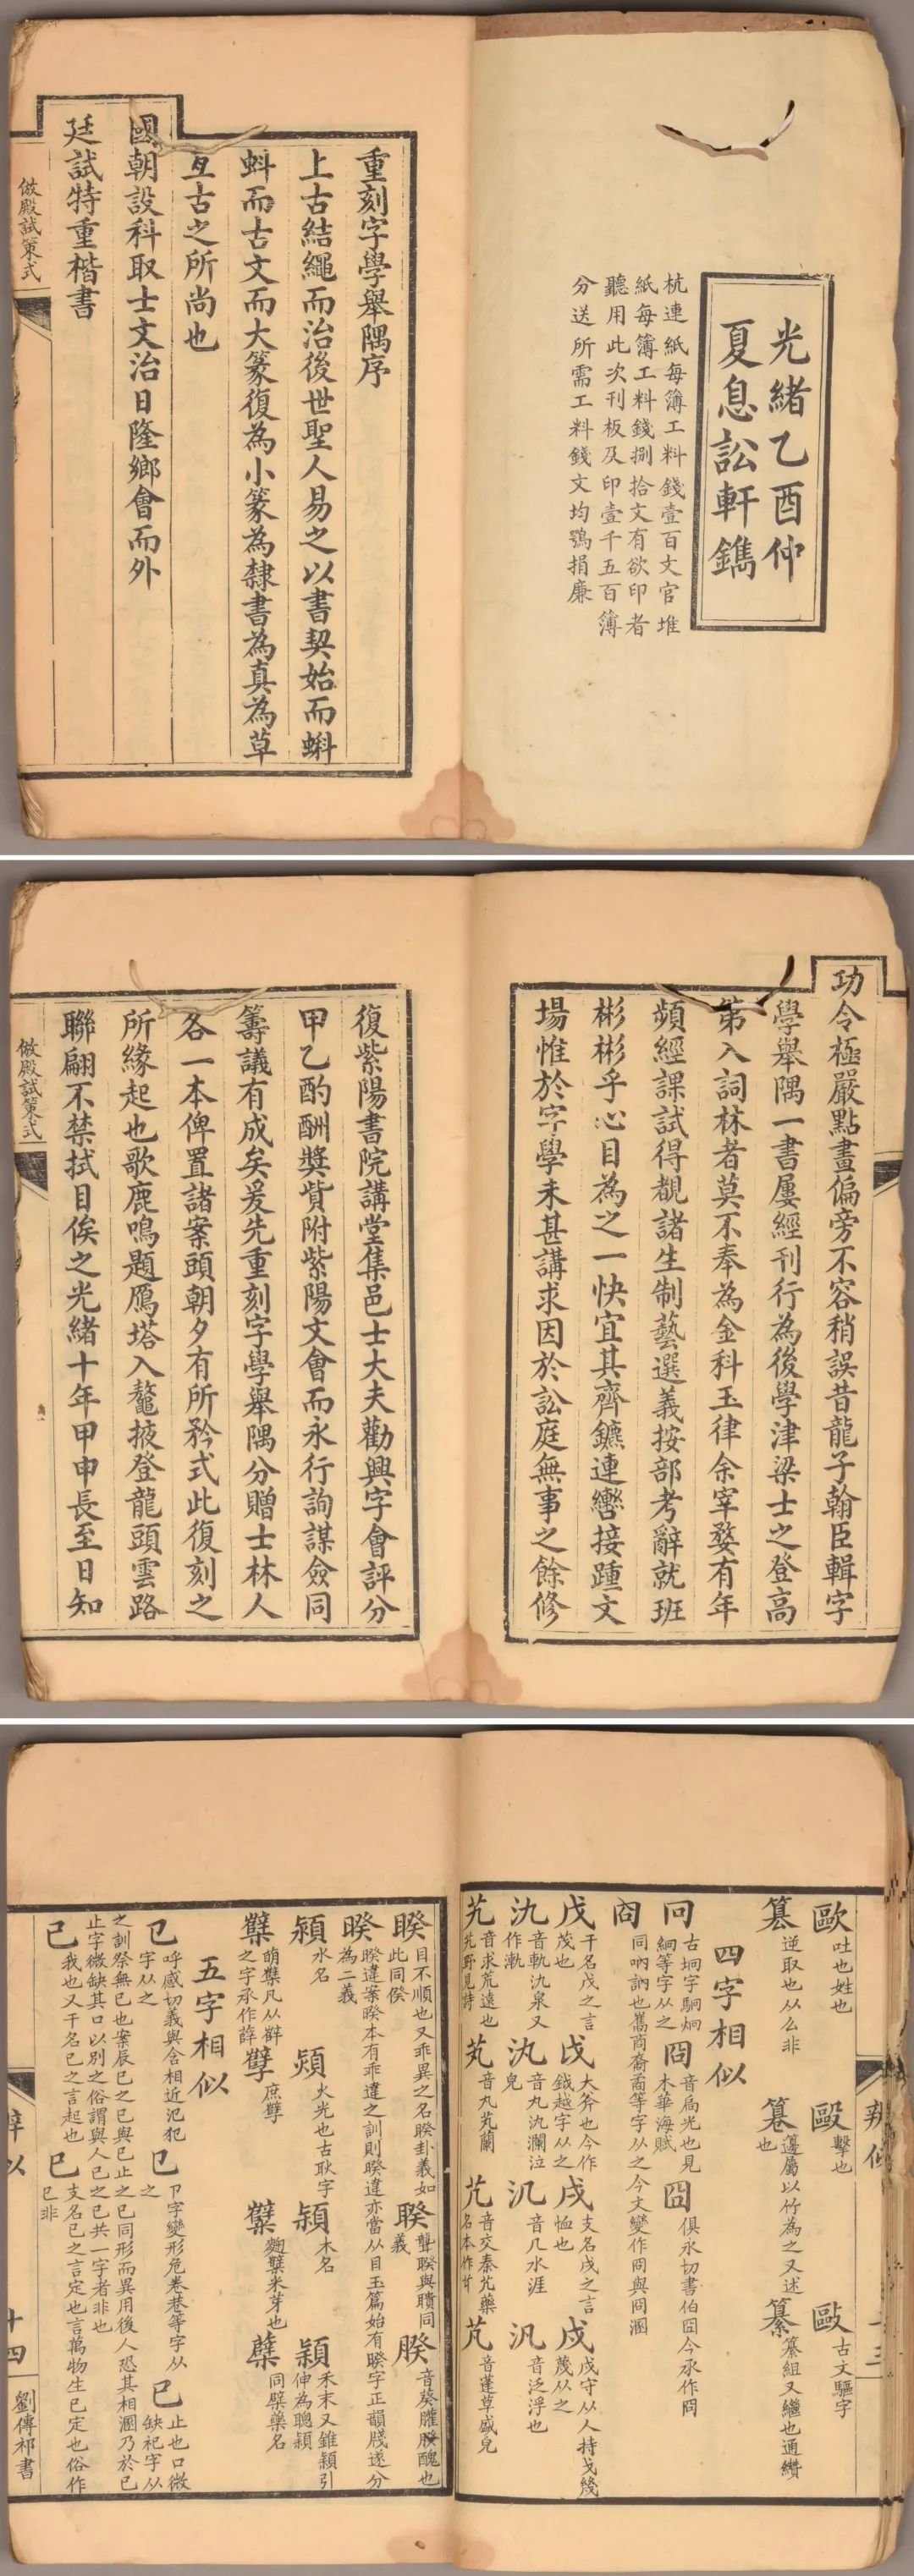 光緒乙酉仲
夏息訟軒鐫
杭連紙每簿工料錢壹百文官堆
紙每簿工料錢捌拾文有欲印者
聽用此次刊板及印壹千五百簿
分送所需工料錢文均鶚捐廉
重刻字學舉隅序
上古結繩而治後世聖人易之以書契始而蝌
蚪而古文而大篆復為小篆為隸書為真為草
亙古之所尚也
國朝設科取士文治日隆鄉會而外
廷試特重楷書
倣殿試策式
功令極嚴點畫偏旁不容稍誤昔龍子翰臣輯字
學舉隅一書屢經刊行為後學津梁士之登高
第入詞林者莫不奉為金科玉律余宰婺有年
頻經課試得觀諸生制藝選義按部考辭就班
彬彬乎心目為之一快宜其齊鑣連轡接踵文
場惟於字學未甚講求因於訟庭無事之餘修
復紫陽書院講堂集邑士大夫勸興字會評分
甲乙酌酬獎貲附紫陽文會而永行詢謀僉同
籌議有成矣爰先重刻字學舉隅分贈士林人
各一本俾置諸案頭朝夕有所矜式此復刻之
所緣起也歌鹿鳴題鴈塔入鼇掖登龍頭雲路
聯翩不禁拭目俟之光緒十年甲申長至日知
倣殿試策式
歐 吐也姓也 毆 擊也 敺 古文驅字
篡 逆取也从厶非 篹 籩屬以竹為之又述也 纂 纂組又繼也通纘
四字相似
冋 古坰字駉炯絅等字从之 冏 音扃光也見木華海賦 囧 俱永切書伯囧今承作冏
㕯 同吶訥也雟商裔矞等字从之今文變作冏與冏溷
戊 干名戊之言茂也 戉 大斧也今作鉞越字从之 戌 支名戌之言恤也 戍 戍守从人持戈幾蔑从之
氿 音軌氿泉又作漸 汍 音九汍瀾泣皃 汎 音几水涯 汎 音泛浮也
艽 音求荒遠也艽野見詩 芄 音九芄蘭 艽 音交秦艽藥名本作艽 芃 音蓬草盛皃
睽 目不順也又乖異之名睽卦義如此同傒 聧 聾聧與聵同義 脵 音葵䐶脵醜也
暌 暌違案睽本有乖違之訓則睽違亦當从目玉篇始有暌字正韻牋遂分為二義
潁 水名 熲 火光也古耿字 穎 木名 穎 禾末又錐穎引伸為聰穎
櫱 萌櫱凡从辥之字承作薛 孼 庶孽 糱 麴糱米芽也 蘗 同檗藥名
五字相似
㔾 呼感切義與含相近氾犯字从之 㔾 卩字變形危卷巷等字从之 已 止也口微缺祀字从
之訓祭無已也案辰巳之巳與已止之已同形而異用後人恐其相溷乃於已
止字微缺其口以別之俗謂與人己之己共一字者非也
己 我也又干名己之言起也 巳 支名巳之言定也言萬物生已定也俗作已非
劉傳祁書